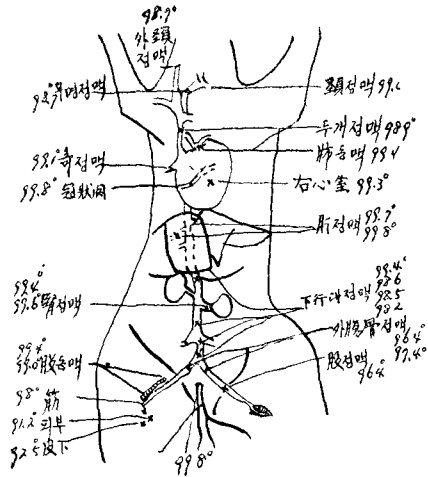 98.9°
外頸
정맥
頸정맥 99.2
두개정맥 98.9°
肺동맥 99.4
奇정맥
99.8°冠狀洞
右心室 99.3°
肝정맥 99.7°
99.8°
99.4°
99.6°腎정맥
下行대정맥 99.4°
98.6
98.5
98.2
外腸骨정맥
96.4°
97.4°
股정맥
96.4°
99.4°
99.0°股동맥
98°筋
91.2°피부
92.5°皮下
99.8°